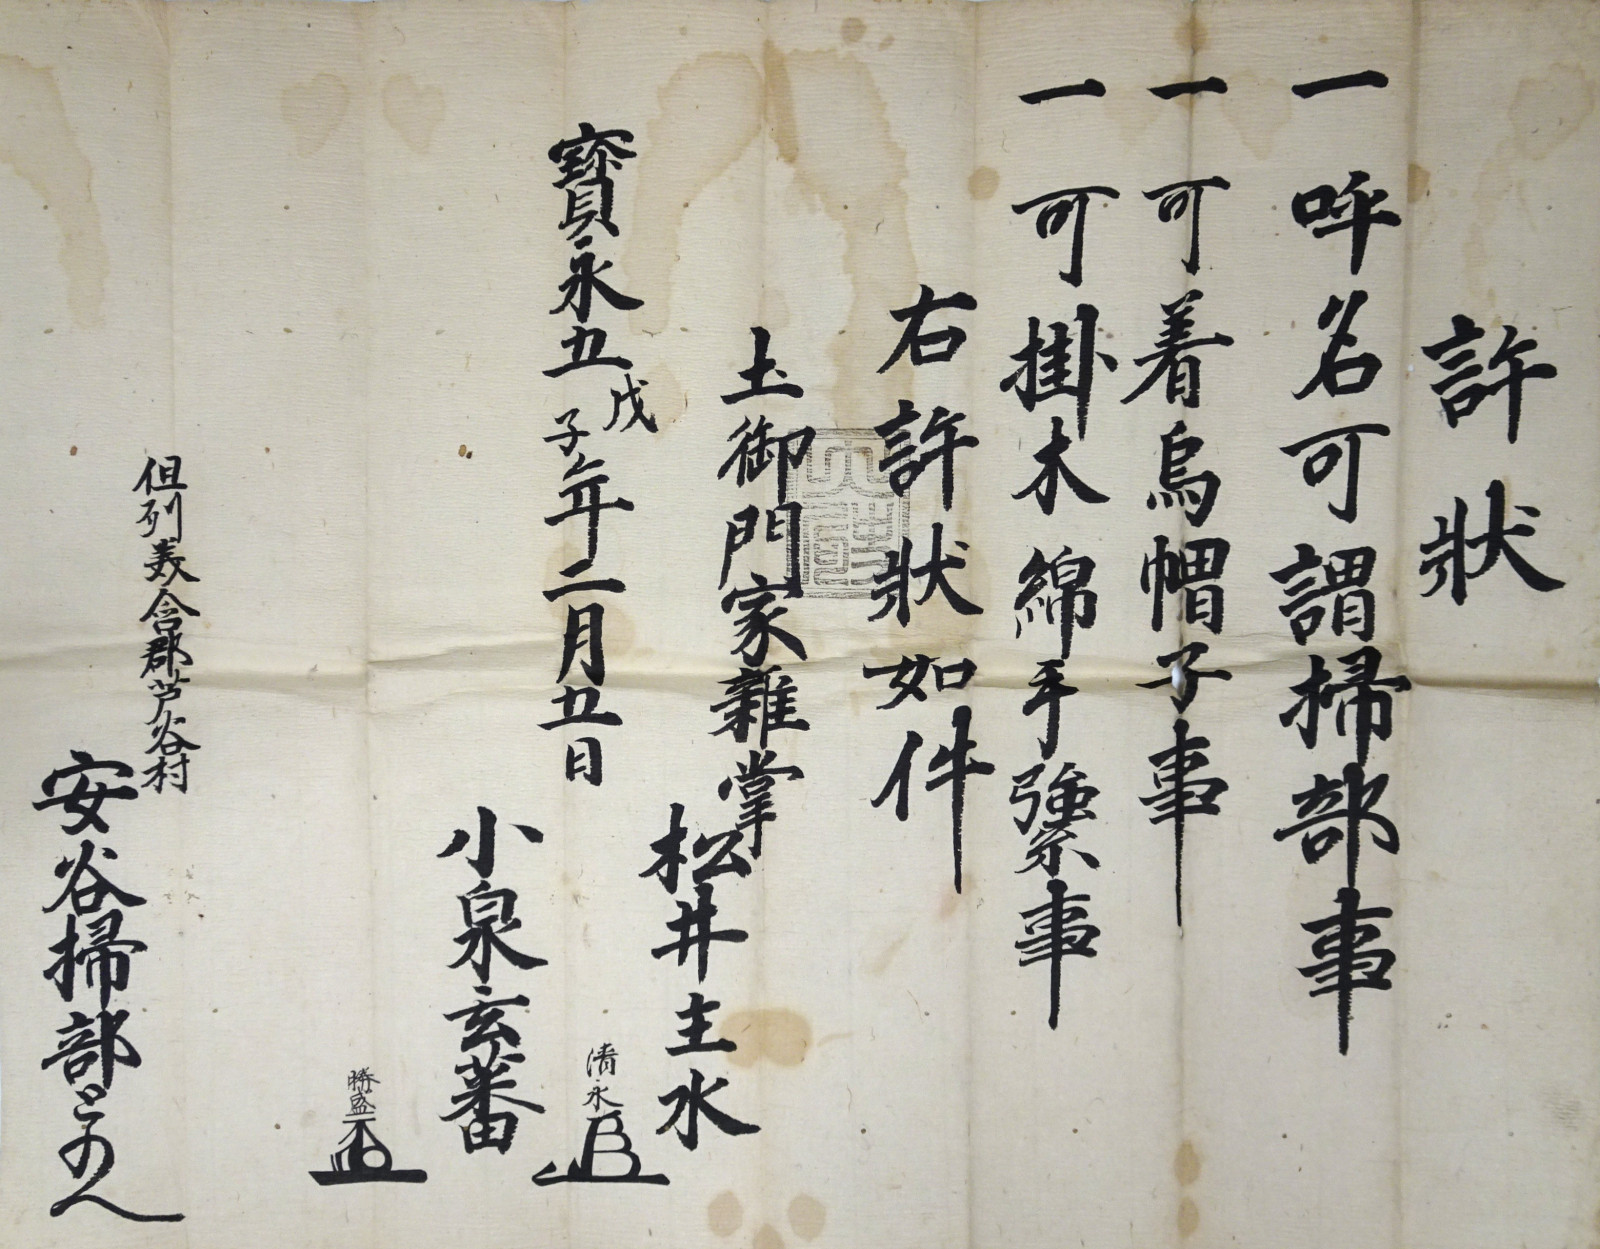 許狀
一呼名可謂掃部事
一可着烏帽子事
一可掛木綿手繦事
右許狀如件
土御門家雜掌
松井主水
清永
寳永五戊子年二月五日
小泉玄蕃
勝盛
但列美含郡芦谷村
安谷掃部とのへ